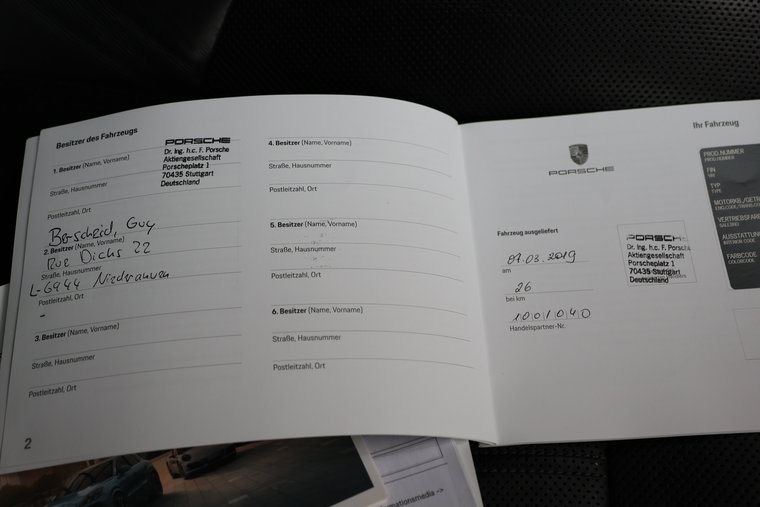 Besitzer des Fahrzeugs
1. Besitzer (Name, Vorname)
PORSCHE
Dr. Ing. h.c. F. Porsche
Aktiengesellschaft
Porscheplatz 1
70435 Stuttgart
Deutschland
Straße, Hausnummer
Postleitzahl, Ort
Berscheid, Guy
2. Besitzer (Name, Vorname)
Rue Dicks 22
Straße, Hausnummer
L-6944 Niederanven
Postleitzahl, Ort
-
3. Besitzer (Name, Vorname)
Straße, Hausnummer
Postleitzahl, Ort
2
4. Besitzer (Name, Vorname)
Straße, Hausnummer
Postleitzahl, Ort
5. Besitzer (Name, Vorname)
Straße, Hausnummer
Postleitzahl, Ort
6. Besitzer (Name, Vorname)
Straße, Hausnummer
Postleitzahl, Ort
Ihr Fahrzeug
PORSCHE
Fahrzeug ausgeliefert
07.03.2019
am
26
bei km
1001040
Handelspartner-Nr.
PORSCHE
Dr. Ing. h.c. F. Porsche
Aktiengesellschaft
Porscheplatz 1
70435 Stuttgart
Deutschland
PROD.NUMMER
PROD.NUMBER
FIN
VIN
TYP
TYPE
MOTORKB./GETR
ENG.CODE/TRANS.C
VERTRIEBSFAR
SALES NO
AUSSTATTUNG
INTERIOR CODE
FARBCODE
COLORCODE
mationsmedia ->